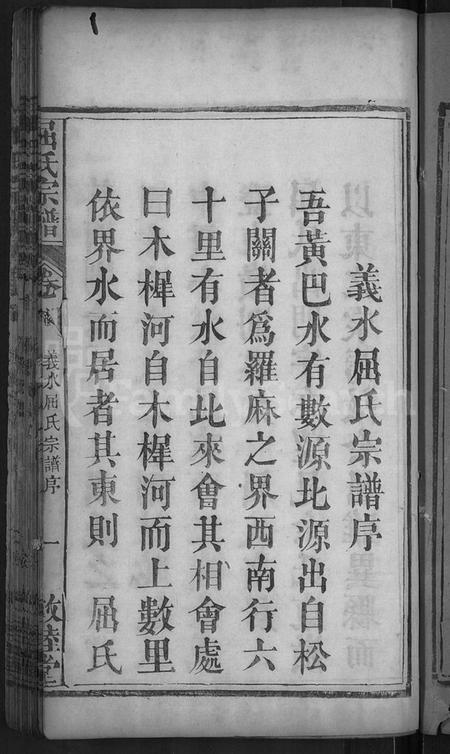 義水屈氏宗譜序
吾黃巴水有數源北源出自松
子關者爲羅麻之界西南行六
十里有水自北來會其相會處
曰木樨河自木樨河而上數里
依界水而居者其東則 屈氏
屈氏宗譜
義水屈氏宗譜序
一
敦睦堂